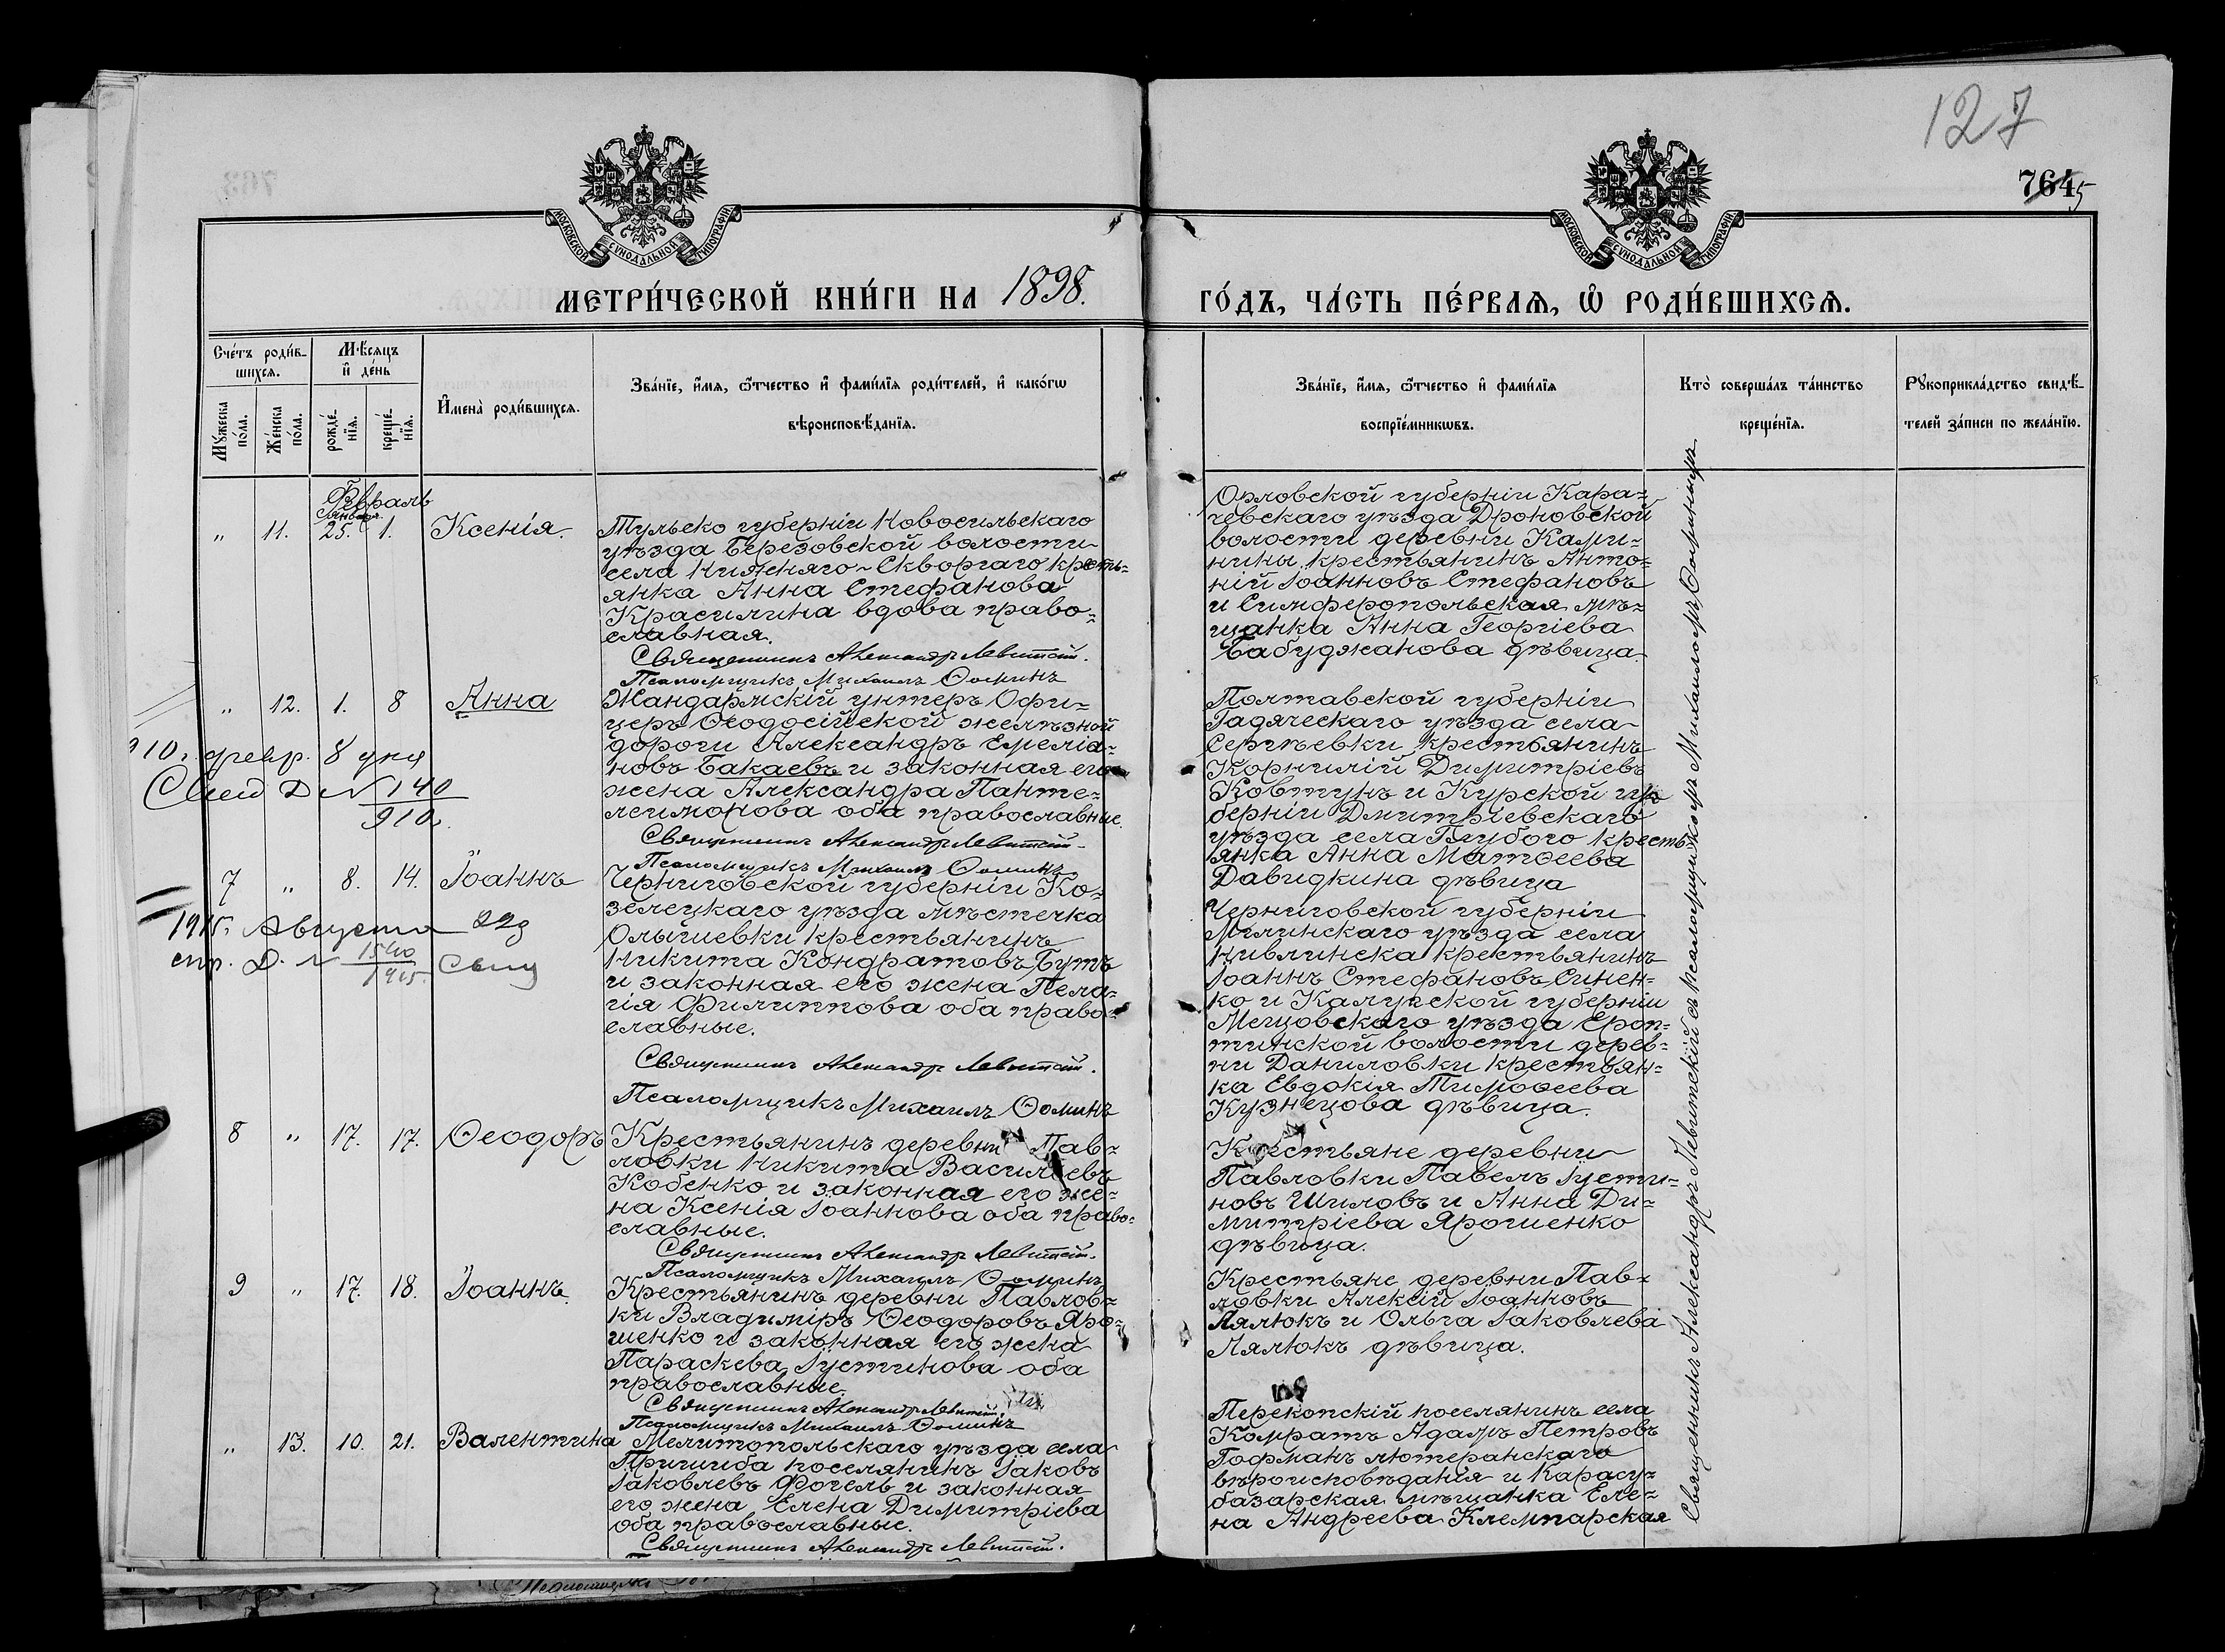 127
7645
МОСКОВСКОЙ СѴНОДАЛЬНОЙ ТИПОГРАФІИ
МОСКОВСКОЙ СѴНОДАЛЬНОЙ ТИПОГРАФІИ
МЕТРИ́ЧЕСКОЙ КНИ́ГИ НА 1898.
ГО́ДЪ, ЧА́СТЬ ПЕ́РВАЯ, Ѡ РОДИ́ВШИХСЯ.
Сче́тъ роди́в-
шихся.
Мѣ́сяцъ
и де́нь
Му́жеска
по́ла.
Же́нска
по́ла.
рожде́-
нія.
креще́-
нія.
Имена̀ роди́вшихся.
Зва́ніе, и́мя, ѻ́тчество и фами́лія роди́телей, и како́гѡ
вѣроисповѣ́данія.
Зва́ніе, и́мя, ѻ́тчество и фами́лія
воспріе́мникѡвъ.
Кто̀ соверша́лъ та́инство
креще́нія.
Рꙋкоприкла́дство свидѣ́-
телей за́писи по жела́нію.
Февраль
Января
„ 11. 25. 1. Ксенія.
Тульско губерніи Новосильскаго
уѣзда Березовской волости
села Нижняго-Скворгаго кресть-
янка Анна Стефанова
Красилина вдова право-
славная.
Священникъ Александръ Левитскій.
Псаломщикъ Михаилъ Ѳоминъ
Орловской губерніи Кара-
чевскаго уѣзда Дроновской
волости деревни Ками-
нины крестьянинъ Анто-
ній Іоанновъ Стефановъ
и Симферопольская мѣ-
щанка Анна Георгіева
Бабуджанова дѣвица.
„ 12. 1. 8 Анна
Жандармскій унтеръ Офи-
церъ Ѳеодосійской желѣзной
дороги Александръ Емеліа-
новъ Бакаевъ и законная его
жена Александра Панте-
леимонова оба православные.
Священникъ Александръ Левитскій.
Псаломщикъ Михаилъ Ѳоминъ
910г. февр. 8 дня
Д N 140
910г.
Полтавской губерніи
Гадяческаго уѣзда села
Сергѣевки крестьянинъ
Корнилій Димитріевъ
Ковтунъ и Курской гу-
берніи Дмитріевскаго
уѣзда села Глубого кресть-
янка Анна Матѳеева
Давидкина дѣвица
7 „ 8. 14. Іоаннъ
Черниговской губерніи Ко-
зелецкаго уѣзда мѣстечка
Олышевки крестьянинъ
Никита Кондратовъ Бутъ
и законная его жена Пела-
гія Филиппова оба право-
славные.
Священникъ Александръ Левитскій.
Псаломщикъ Михаилъ Ѳоминъ
1915г. Августа 22д
спр. Д. N 1540
1915.
Черниговской губерніи
Мглинскаго уѣзда села
Нивлинска крестьянинъ
Іоаннъ Стефановъ Синен-
ко и Калужской губерніи
Мещовскаго уѣзда Ероп-
тинской волости дерев-
ни Даниловки крестьян-
ка Евдокія Тимоѳеева
Кузнецова дѣвица.
8 „ 17. 17. Ѳеодоръ
Крестьянинъ деревни Пав-
ловки Никита Васильевъ
Кобенко и законная его же-
на Ксенія Іоаннова оба право-
славные.
Священникъ Александръ Левитскій.
Псаломщикъ Михаилъ Ѳоминъ
Крестьяне деревни
Павловки Павелъ Іусти-
новъ Шиловъ и Анна Ди-
митріева Ярошенко
дѣвица.
9 „ 17. 18. Іоаннъ.
Крестьянинъ деревни Павлов-
ки Владиміръ Ѳеодоровъ Яро-
шенко и законная его жена
Параскева Іустинова оба
православные.
Священникъ Александръ Левитскій.
Псаломщикъ Михаилъ Ѳоминъ
Крестьяне деревни Пав-
ловки Алексій Іоанновъ
Лялюкъ и Ольга Іаковлева
Лялюкъ дѣвица.
„ 13. 10. 21. Валентина
Мелитопольскаго уѣзда села
Пришиба поселянинъ Іаковъ
Іаковлевъ Фогель и законная
его жена Елена Димитріева
оба православные.
Священникъ Александръ Левитскій.
Перекопскій поселянинъ села
Комратъ Адамъ Петровъ
Гофманъ лютеранскаго
вѣроисповѣданія и Карасу-
базарская мѣщанка Еле-
на Андреева Клемпарская
Священникъ Александръ Левитскій съ псаломщикомъ Михаиломъ Ѳоминымъ